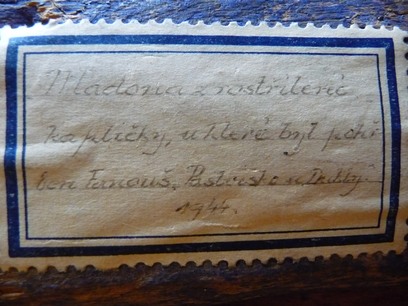 Madona z rostřílené
kapličky, u které byl pohř
ben Fanouš. Pastvisko u
1944.